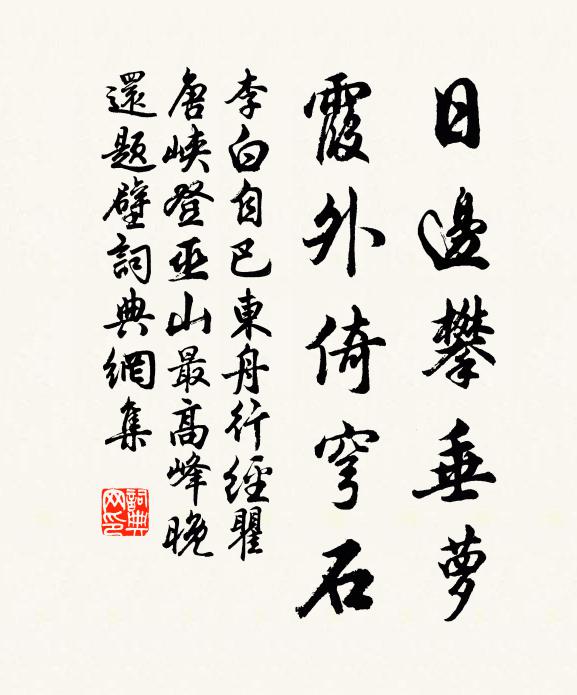 日邊攀垂夢
霞外倚穹石
李白自巴東舟行經瞿
唐峽登巫山最高峰晚
還題壁詞典網集
詞典網印